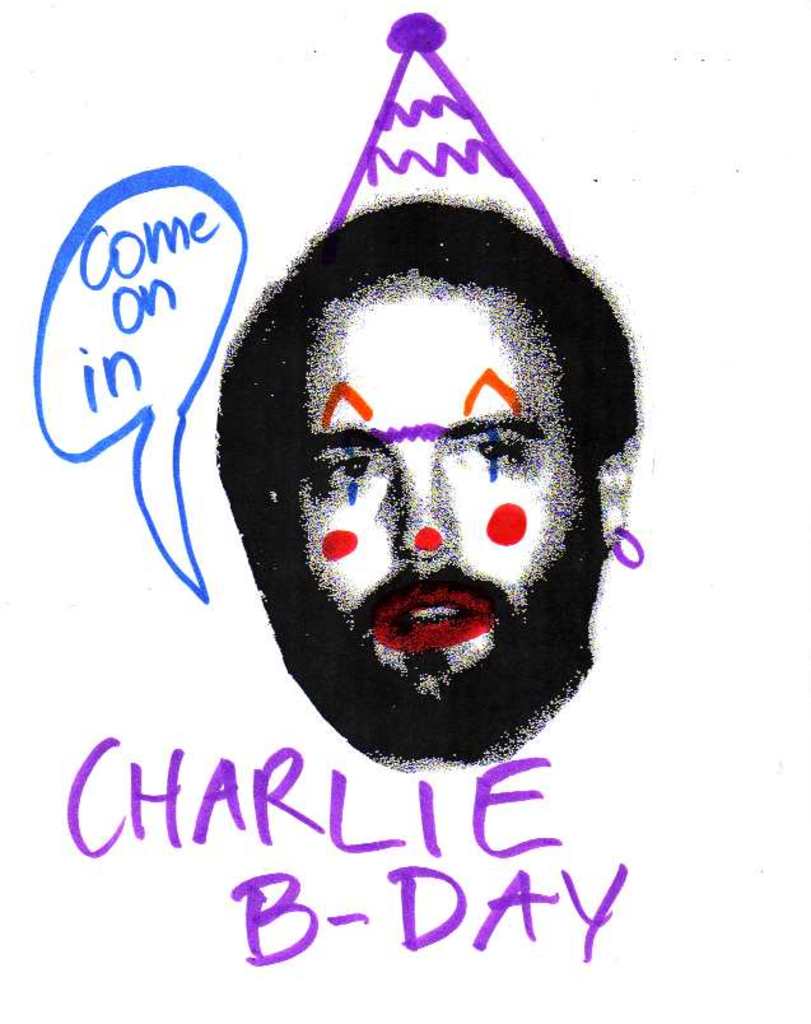 come
on
in
CHARLIE
B-DAY